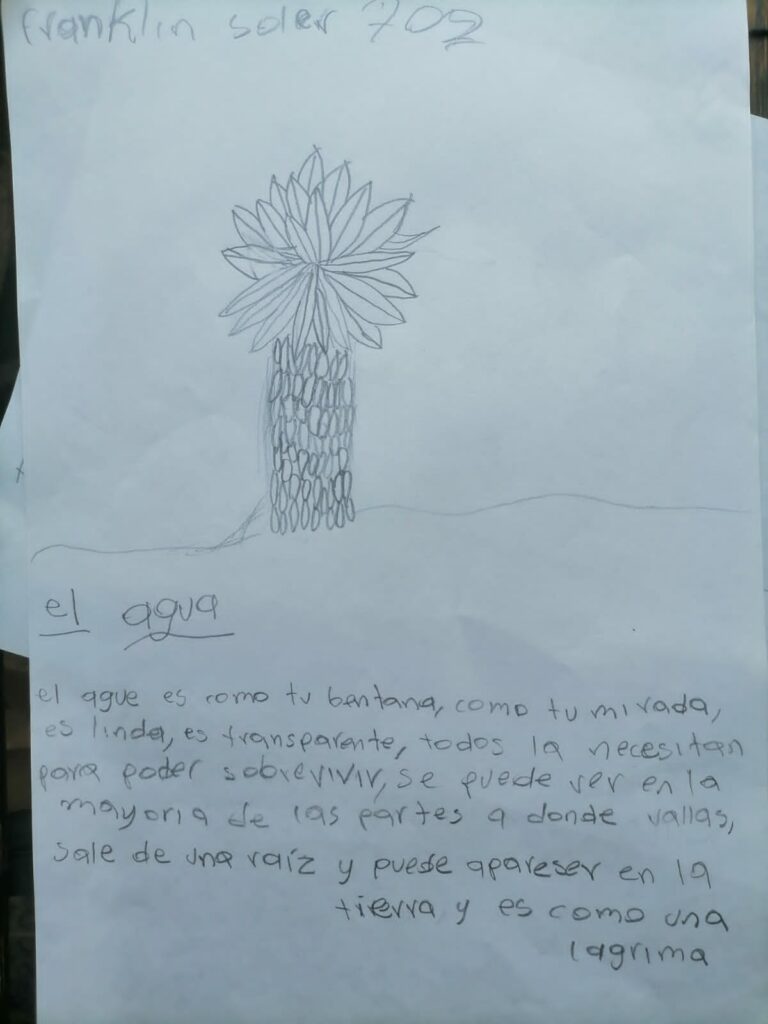 franklin soler 702
el agua
el ague es como tu bentana, como tu mirada,
es linda, es transparente, todos la necesitan
para poder sobrevivir, se puede ver en la
mayoria de las partes a donde vallas,
sale de una raíz y puede apareser en la
tierra y es como una
lagrima